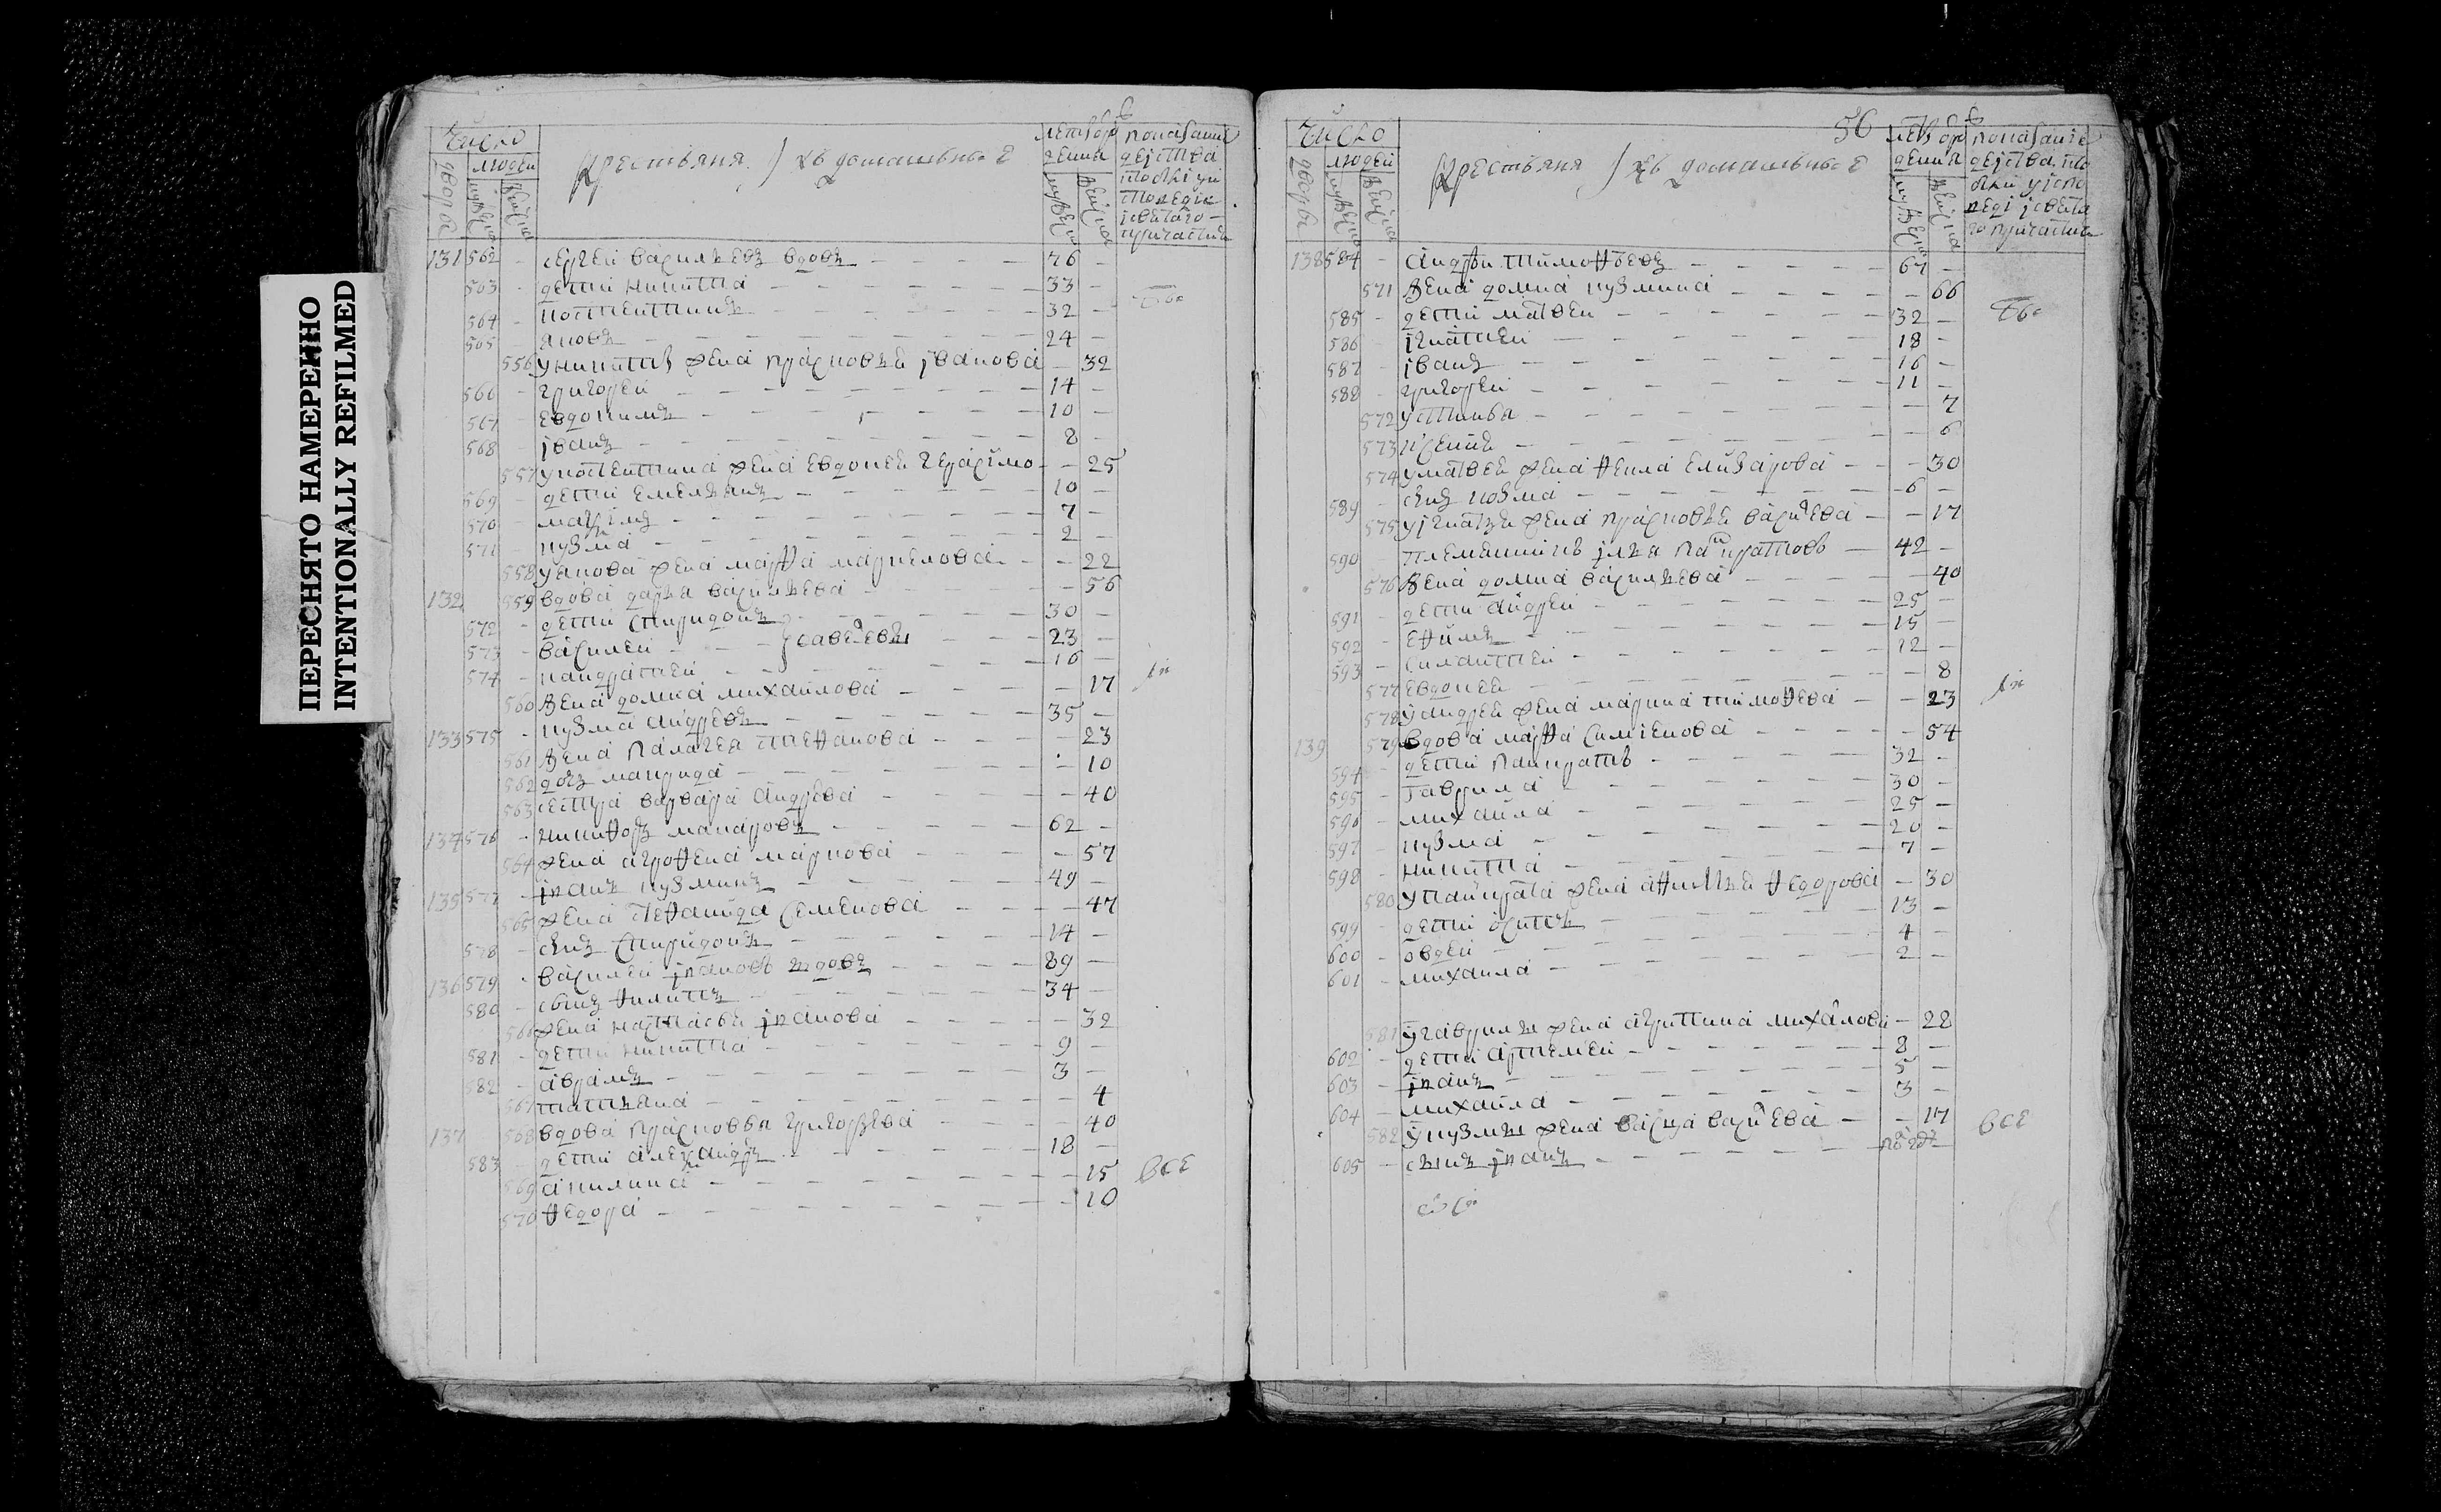 ПЕРЕСНЯТО НАМЕРЕННО
INTENTIONALLY REFILMED
число
дворовъ
людей
мужеска
женска
крестьяня и ихъ домашные
лета рождения
мужеска
женска
131 562 - сергеи васильевъ вдовъ - 76 -
563 - дети никита - 33 -
564 - костентинъ - 32 -
565 - яковъ - 24 -
556 у никиты жена прасковья іванова - 32
566 - григореи - 14 -
567 - евдокимъ - 10 -
568 - іванъ - 8 -
557 у костентина жена евдокея герасимо - 25
569 - дети емельянъ - 10 -
570 - максимъ - 7 -
571 - кузма - 2 -
558 у якова жена марфа маркелова - 22
132 559 вдова дарья васильева - 56
572 - дети спиридонъ - 30 -
573 - василеи - савельевы - 23 -
574 - кондратеи - 16 -
560 жена домна михаилова - 17
133 575 - кузма андреевъ - 35 -
561 жена палагея стефанова - 23
562 дочь маврида - 10
563 сестра варвара андреева - 40
134 576 - никифоръ макаровъ - 62 -
564 жена агрофена маркова - 57
135 577 - іванъ кузминъ - 49 -
565 жена стефанида семенова - 47
578 - сынъ спиридонъ - 14 -
136 579 - василеи івановъ вдовъ - 89 -
580 - сынъ филипъ - 34 -
566 жена настасья іванова - 32
581 - дети никита - 9 -
582 - аврамъ - 3 -
567 татьяна - 4
137 568 вдова прасковья григорьева - 40
583 - дети александръ - 18 -
569 акилина - 15
все
570 федора - 10
56
число
дворовъ
людей
мужеска
женска
крестьяня и ихъ домашные
мужеска
женска
138 584 - андреи тимофеевъ - 67 -
571 жена домна кузмина - 66
585 - дети матвеи - 32 -
586 - ігнатеи - 18 -
587 - іванъ - 16 -
588 - григореи - 11 -
572 устинья - 7
573 ксения - 6
574 у матвея жена фекла елизарова - 30
589 - сынъ козма - 6 -
575 у ігнатья жена прасковья васильева - 17
590 - племянникъ ілья панкратовъ - 42 -
576 жена домна васильева - 40
591 - дети андреи - 25 -
592 - ефимъ - 15 -
593 - силантеи - 12 -
577 евдокея - 8
578 у андрея жена марина тимофеева - 23
139 579 вдова марфа симіенова - 54
594 - дети панкратъ - 32 -
595 - гаврила - 30 -
596 - михаила - 25 -
597 - кузма - 20 -
598 - никита - 7 -
580 у панкрата жена афимья федорова - 30
599 - дети осипъ - 13 -
600 - овдеи - 4 -
601 - михаила - 2 -
581 у гаврилы жена агрипина михаилова - 28
602 - дети артемеи - 8 -
603 - іванъ - 5 -
604 - михаила - 3 -
582 у кузмы жена васильева - 17
все
605 - сынъ іванъ -